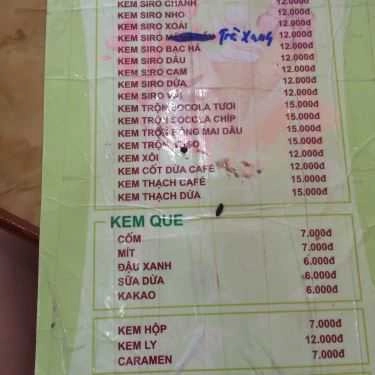 KEM SIRO CHANH 12.000đ
KEM SIRO NHO 12.000đ
KEM SIRO XOÀI 12.000đ
KEM SIRO Trà Xanh 12.000đ
KEM SIRO BẠC HÀ 12.000đ
KEM SIRO DÂU 12.000đ
KEM SIRO CAM 12.000đ
KEM SIRO DỪA 12.000đ
KEM SIRO VẢI 12.000đ
KEM TRỘN SOCOLA TƯƠI 15.000đ
KEM TRỘN SOCOLA CHÍP 15.000đ
KEM TRỘN HỒNG MAI DÂU 15.000đ
KEM TRỘN 15.000đ
KEM XÔI 12.000đ
KEM CỐT DỪA CAFÉ 12.000đ
KEM THẠCH CAFÉ 15.000đ
KEM THẠCH DỪA 15.000đ
KEM QUE
CỐM 7.000đ
MÍT 7.000đ
ĐẬU XANH 6.000đ
SỮA DỪA 6.000đ
KAKAO 6.000đ
KEM HỘP 7.000đ
KEM LY 12.000đ
CARAMEN 7.000đ